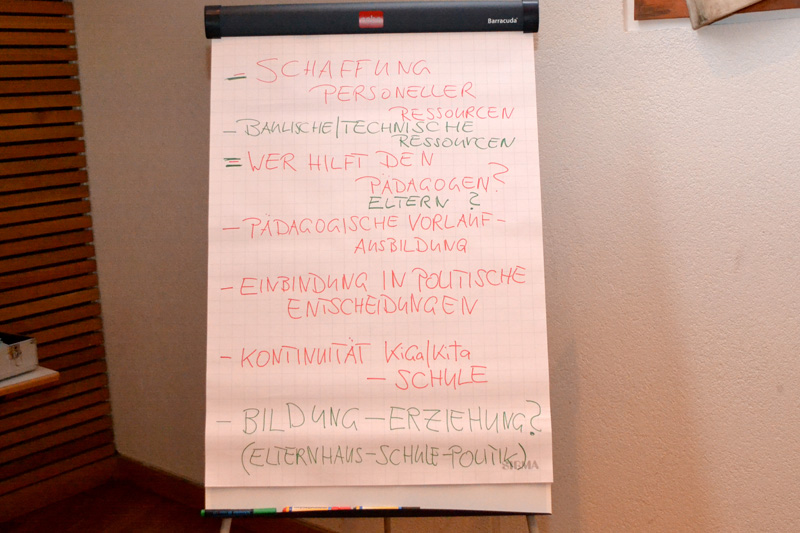 Barracuda
= SCHAFFUNG
PERSONELLER
RESSOURCEN
- BAULISCHE/TECHNISCHE
RESSOURCEN
= WER HILFT DEN
PÄDAGOGEN?
ELTERN ?
- PÄDAGOGISCHE VORLAUF-
AUSBILDUNG
- EINBINDUNG IN POLITISCHE
ENTSCHEIDUNGEN
- KONTINUITÄT KiGa/Kita
- SCHULE
- BILDUNG - ERZIEHUNG?
(ELTERNHAUS-SCHULE-POLITIK)
SIGMA